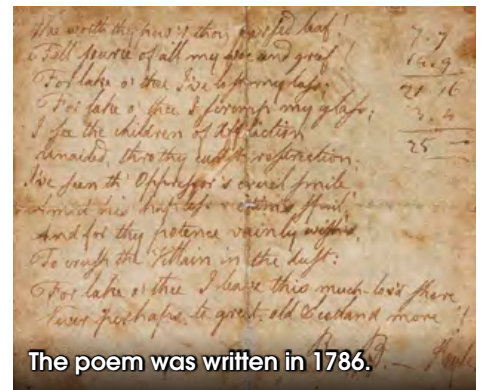 Wae worth thy pow'r, thou cursed leaf! 7.7
Fell source of all my woe and grief 14.9
For lake o' thee I've lost my lass; 21 16
For lake o' thee I scrimp my glass; 3.4
I see the children of Affliction 25 —
Unaided, thro' thy curst restriction.
I've seen th' Oppressor's cruel smile
Amid his hapless victim's spoil,
And for thy potence vainly wish'd
To crush the Villain in the dust:
For lake o' thee I leave this much-lov'd shore
Never perhaps to greet old Scotland more!
R. B. — Kyle
The poem was written in 1786.